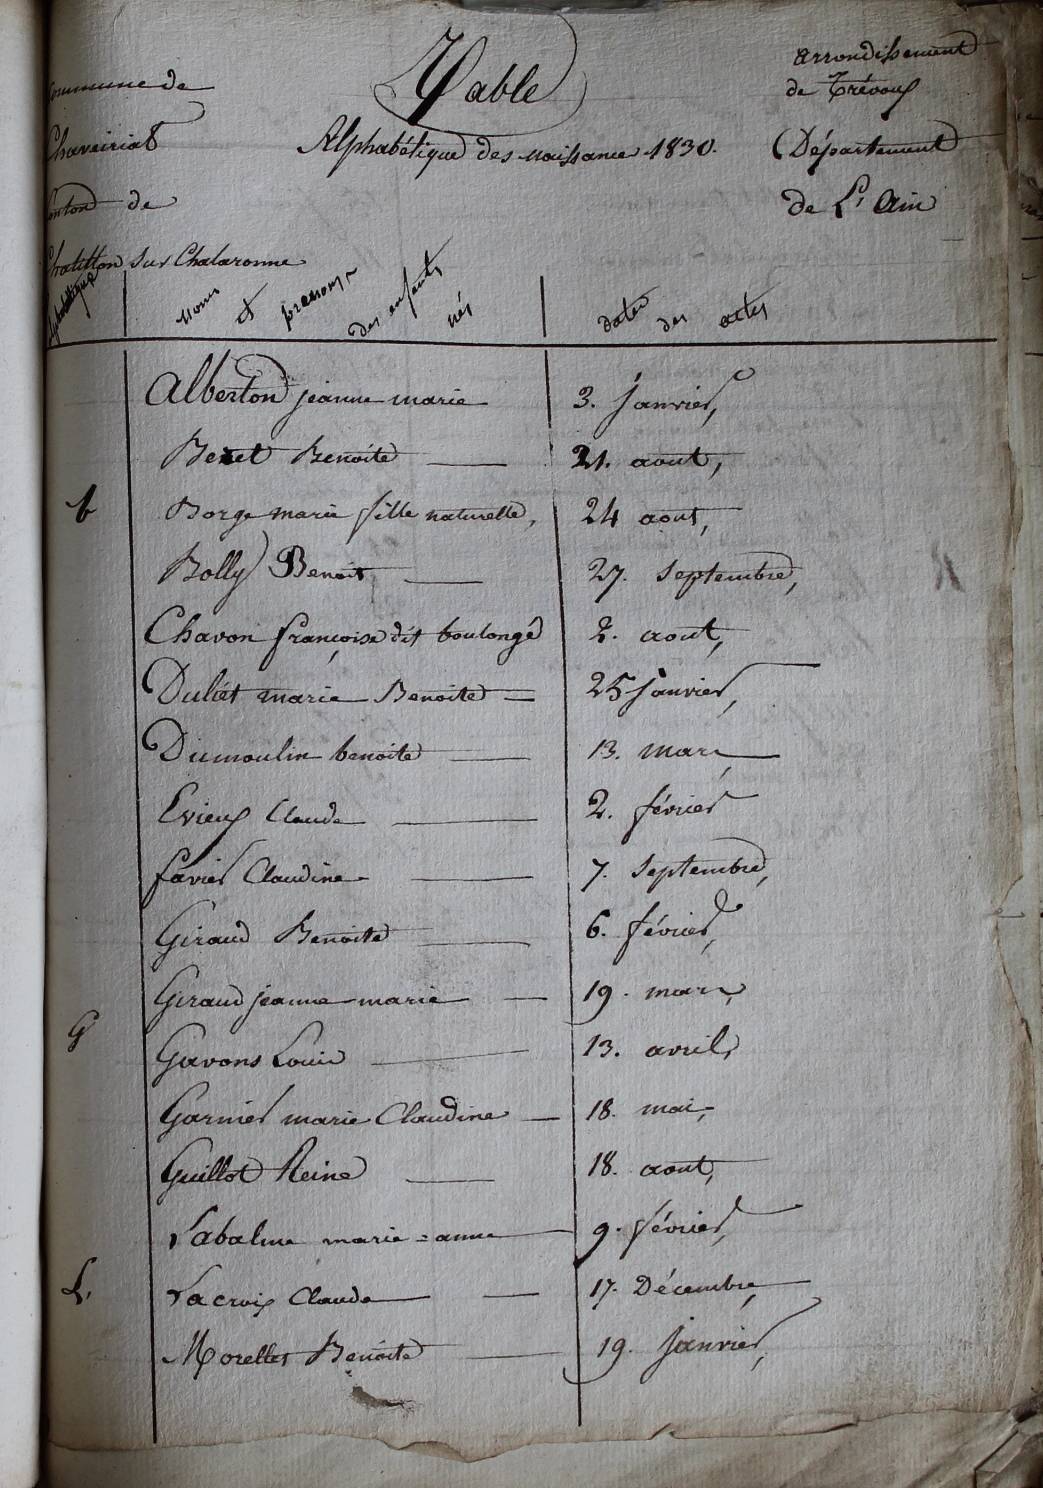 Table
Alphabétique des naissances 1830.
Commune de
Chaveiriat
Canton de
Chatillon sur Chalaronne
arrondissement
de Trévoux
Département
de L'Ain
noms et prenoms des enfants nés
dates des actes
Alberton jeanne marie 3. janvier,
Benet Benoite 21. aout,
b Borge marie fille naturelle, 24 aout,
Bolly Benoit 27. septembre,
Chavon françoise dit boulongé 2. aout,
Duliet marie Benoite 25 janvier,
Dumoulin benoite 13. mars
Evieux Claude 2. février
favier Claudine 7. septembre,
Giraud Benoite 6. février,
Giraud jeanne marie 19. mars,
G Gavons Louis 13. avril,
Garnier marie Claudine 18. mai,
Guillot Reine 18. aout,
Labalme marie=anne 9. février,
L. Lacroix Claude 17. Décembre,
Morellet Benoite 19. janvier,